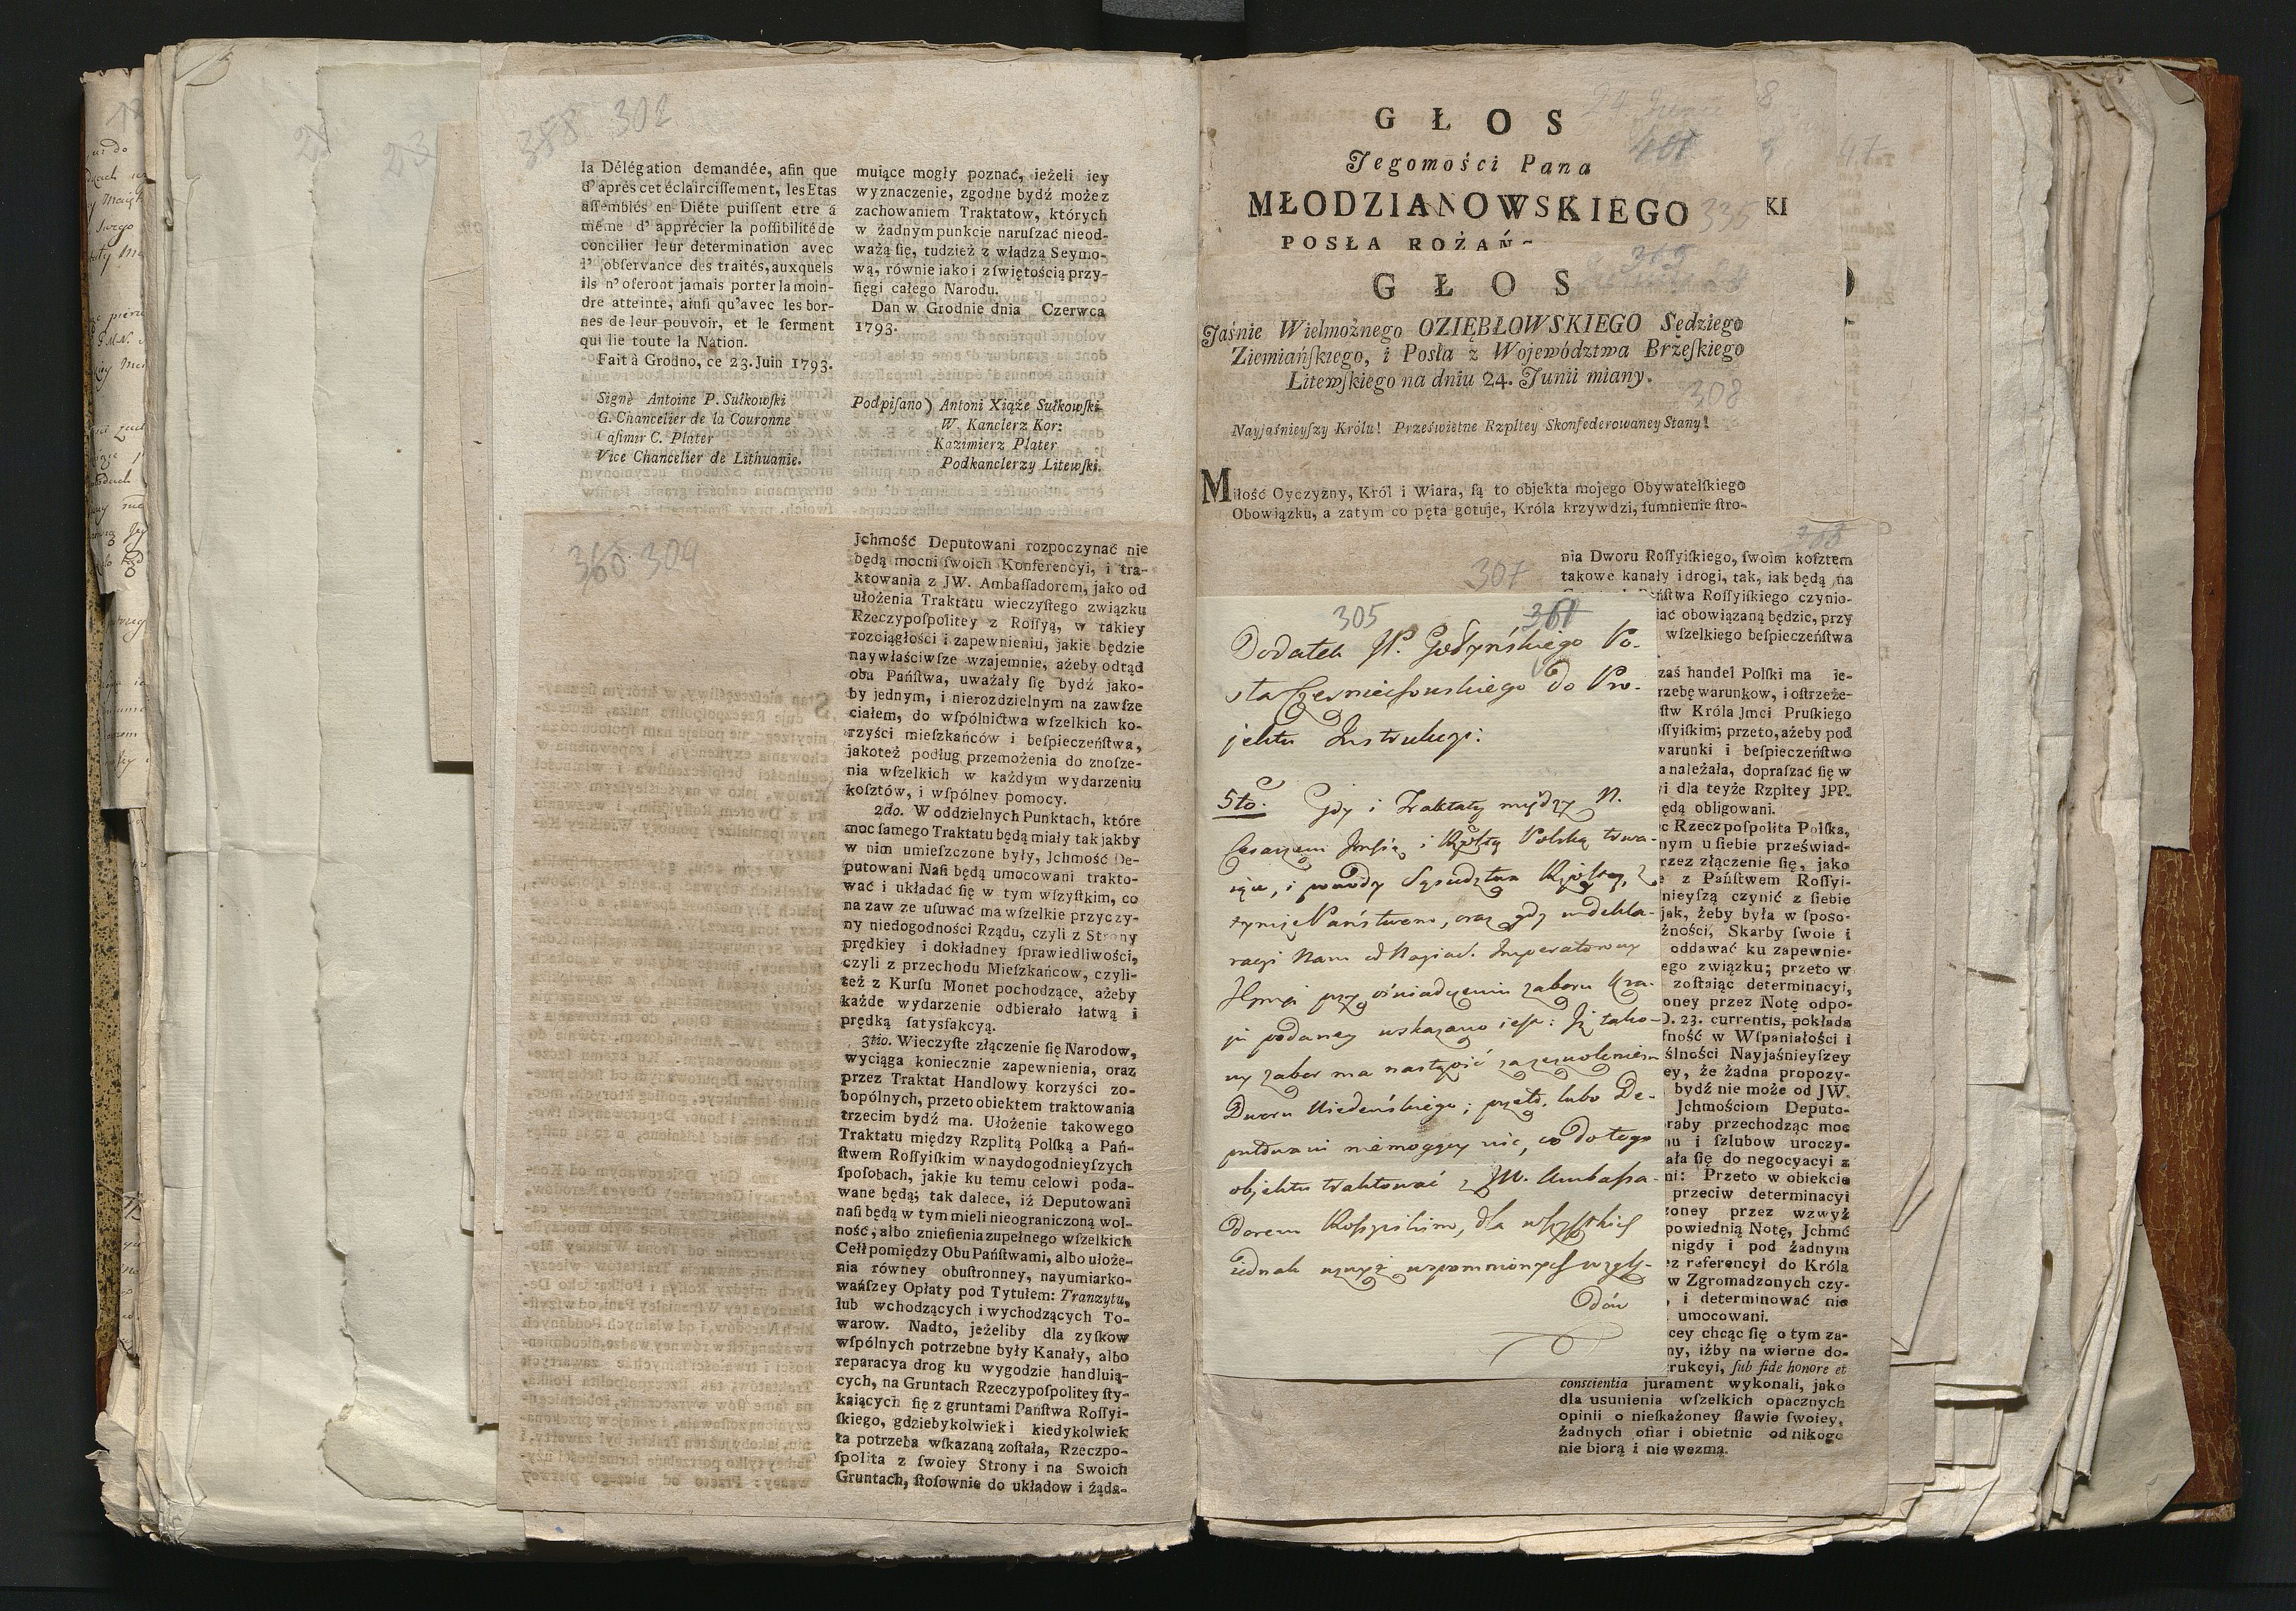 388 302
la Délégation demandée, afin que
d'après cet éclairciſſement, les Etas
aſſemblés en Diéte puiſſent etre á
même d' apprécier la poſſibilité de
concilier leur determination avec
l' obſervance des traités, auxquels
ils n' oſeront jamais porter la moin-
dre atteinte, ainſi qu'avec les bor-
nes de leur pouvoir, et le ſerment
qui lie toute la Nation.
Fait à Grodno, ce 23. Juin 1793.
Signè Antoine P. Sułkowſki
G. Chancelier de la Couronne
Caſimir C. Plater
Vice Chancelier de Lithuanie.
muiące mogły poznać, ieżeli iey
wyznaczenie, zgodne bydź może z
zachowaniem Traktatow, których
w żadnym punkcie naruſzać nieod-
ważą ſię, tudzież z władzą Seymo-
wą, równie iako i z ſwiętością przy-
ſięgi całego Narodu.
Dan w Grodnie dnia Czerwca
1793.
Podpiſano) Antoni Xiąże Sułkowſki
W. Kanclerz Kor:
Kazimierz Plater
Podkanclerzy Litewſki.
360 309
Jchmość Deputowani rozpoczynać nie
będą mocni ſwoich Konferencyi, i tra-
ktowania z JW. Ambaſſadorem, jako od
ułożenia Traktatu wieczyſtego związku
Rzeczypoſpolitey z Roſſyą, w takiey
rozciągłości i zapewnieniu, jakie będzie
naywłaściwſze wzajemnie, ażeby odtąd
oba Pańſtwa, uważały ſię bydź jako-
by jednym, i nierozdzielnym na zawſze
ciałem, do wſpólnictwa wſzelkich ko-
rzyści mieſzkańców i beſpieczeńſtwa,
jakoteż podług przemożenia do znoſze-
nia wſzelkich w każdym wydarzeniu
koſztów, i wſpólney pomocy.
2do. W oddzielnych Punktach, które
moc ſamego Traktatu będą miały tak jakby
w nim umieſzczone były, Jchmość De-
putowani Naſi będą umocowani trakto-
wać i układać ſię w tym wſzyſtkim, co
na zaw ze uſuwać ma wſzelkie przyczy-
ny niedogodności Rządu, czyli z Strony
prędkiey i dokładney ſprawiedliwości,
czyli z przechodu Mieſzkańcow, czyli-
też z Kurſu Monet pochodzące, ażeby
każde wydarzenie odbierało łatwą i
prędką ſatysfakcyą.
3tio. Wieczyſte złączenie ſię Narodow,
wyciąga koniecznie zapewnienia, oraz
przez Traktat Handlowy korzyści zo-
bopólnych, przeto obiektem traktowania
trzecim bydź ma. Ułożenie takowego
Traktatu między Rzplitą Polſką a Pań-
ſtwem Roſſyiſkim w naydogodnieyſzych
ſpoſobach, jakie ku temu celowi poda-
wane będą; tak dalece, iż Deputowani
naſi będą w tym mieli nieograniczoną wol-
ność, albo znieſienia zupełnego wſzelkich
Cełł pomiędzy Obu Pańſtwami, albo ułoże-
nia równey obuſtronney, nayumiarko-
wańſzey Opłaty pod Tytułem: Tranzytu,
lub wchodzących i wychodzących To-
warow. Nadto, jeżeliby dla zyſkow
wſpólnych potrzebne były Kanały, albo
reparacya drog ku wygodzie handluią-
cych, na Gruntach Rzeczypoſpolitey ſty-
kaiących ſię z gruntami Pańſtwa Roſſyi-
ſkiego, gdziebykolwiek i kiedykolwiek
ta potrzeba wſkazaną zoſtała, Rzeczpo-
ſpolita z ſwoiey Strony i na Swoich
Gruntach, ſtoſownie do układow i żąda-
GŁOS
Jegomości Pana
MŁODZIANOWSKIEGO 335 KI
POSŁA ROŻAŃ-
GŁOS
Jaśnie Wielmożnego OZIĘBŁOWSKIEGO Sędziego
Ziemiańſkiego, i Posła z Województwa Brzeſkiego
Litewſkiego na dniu 24. Junii miany.
308
Nayjaśnieyſzy Królu! Prześwietne Rzpltey Skonfederowaney Stany!
Miłość Oyczyzny, Król i Wiara, ſą to objekta mojego Obywatelſkiego
Obowiązku, a zatym co pęta gotuje, Króla krzywdzi, ſumnienie ſtro-
307
nia Dworu Roſſyiſkiego, ſwoim koſztem
takowe kanały i drogi, tak, iak będą na
ńſtwa Roſſyiſkiego czynio-
iać obowiązaną będzie, przy
wſzelkiego beſpieczeńſtwa
zaś handel Polſki ma ie-
rzebę warunkow, i oſtrzeże-
ſtw Króla Jmci Pruſkiego
oſſyiſkim; przeto, ażeby pod
warunki i beſpieczeńſtwo
a należała, dopraſzać ſię w
i dla teyże Rzpltey JPP.
ędą obligowani.
c Rzeczpoſpolita Polſka,
nym u ſiebie przeświad-
rzez złączenie ſię, jako
e z Pańſtwem Roſſyi-
nieyſzą czynić z ſiebie
jak, żeby była w ſpoſo-
żności, Skarby ſwoie i
oddawać ku zapewnie-
ego związku; przeto w
zoſtaiąc determinacyi,
oney przez Notę odpo-
D. 23. currentis, pokłada
ſność w Wſpaniałości i
ślności Nayjaśnieyſzey
ey, że żadna propozy-
bydź nie może od JW.
Jchmościom Deputo-
raby przechodząc moc
nu i ſzlubow uroczy-
ała ſię do negocyacyi z
ni: Przeto w obiekcie
przeciw determinacyi
zoney przez wzwyż
powiednią Notę, Jchmć
nigdy i pod żadnym
z referencyi do Króla
w Zgromadzonych czy-
, i determinować nie
umocowani.
cey chcąc ſię o tym za-
ny, iżby na wierne do-
rukcyi, ſub fide honore et
conscientia jurament wykonali, jako
dla usunienia wſzelkich opacznych
opinii o nieſkażoney ſławie ſwoiey,
żadnych ofiar i obietnic od nikogo
nie biorą i nie wezmą.
305 361
Dodatek JP. Godyńskiego Po-
sła Czerniechowskiego do Pro-
jektu Instrukcyi:
5to. Gdy i Traktaty między N.
Cesarzem Jmścią i Rzpltą Polską trwa-
ią, i powody Sąsiedztwa Rzpltey, z
tymże Państwem, oraz gdy w dekla-
racyi Nam od Nayiaś. Imperatorowy
Jmci przy oświadczeniu zaboru Kra-
ju podaney wskazano iest: Iż tako-
wy zabor ma nastąpić za zezwoleniem
Dworu Wiedeńskiego; przeto, lubo De-
putowani niemogący nic, co do tego
objektu traktować z JW. Ambassa-
dorem Rossyiskim, dla wszystkich
iednak wzwyż wspomnionych wzglę-
dów